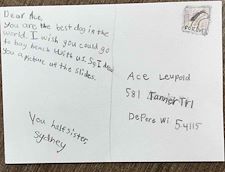 Dear Ace,
You are the best dog in the
world. I wish you could go
to bay beach with us. So I drew
you a picture of the slides.
You half sister,
Sydney
Ace Leupold
581 Tannier Trl
DePere Wi 54115